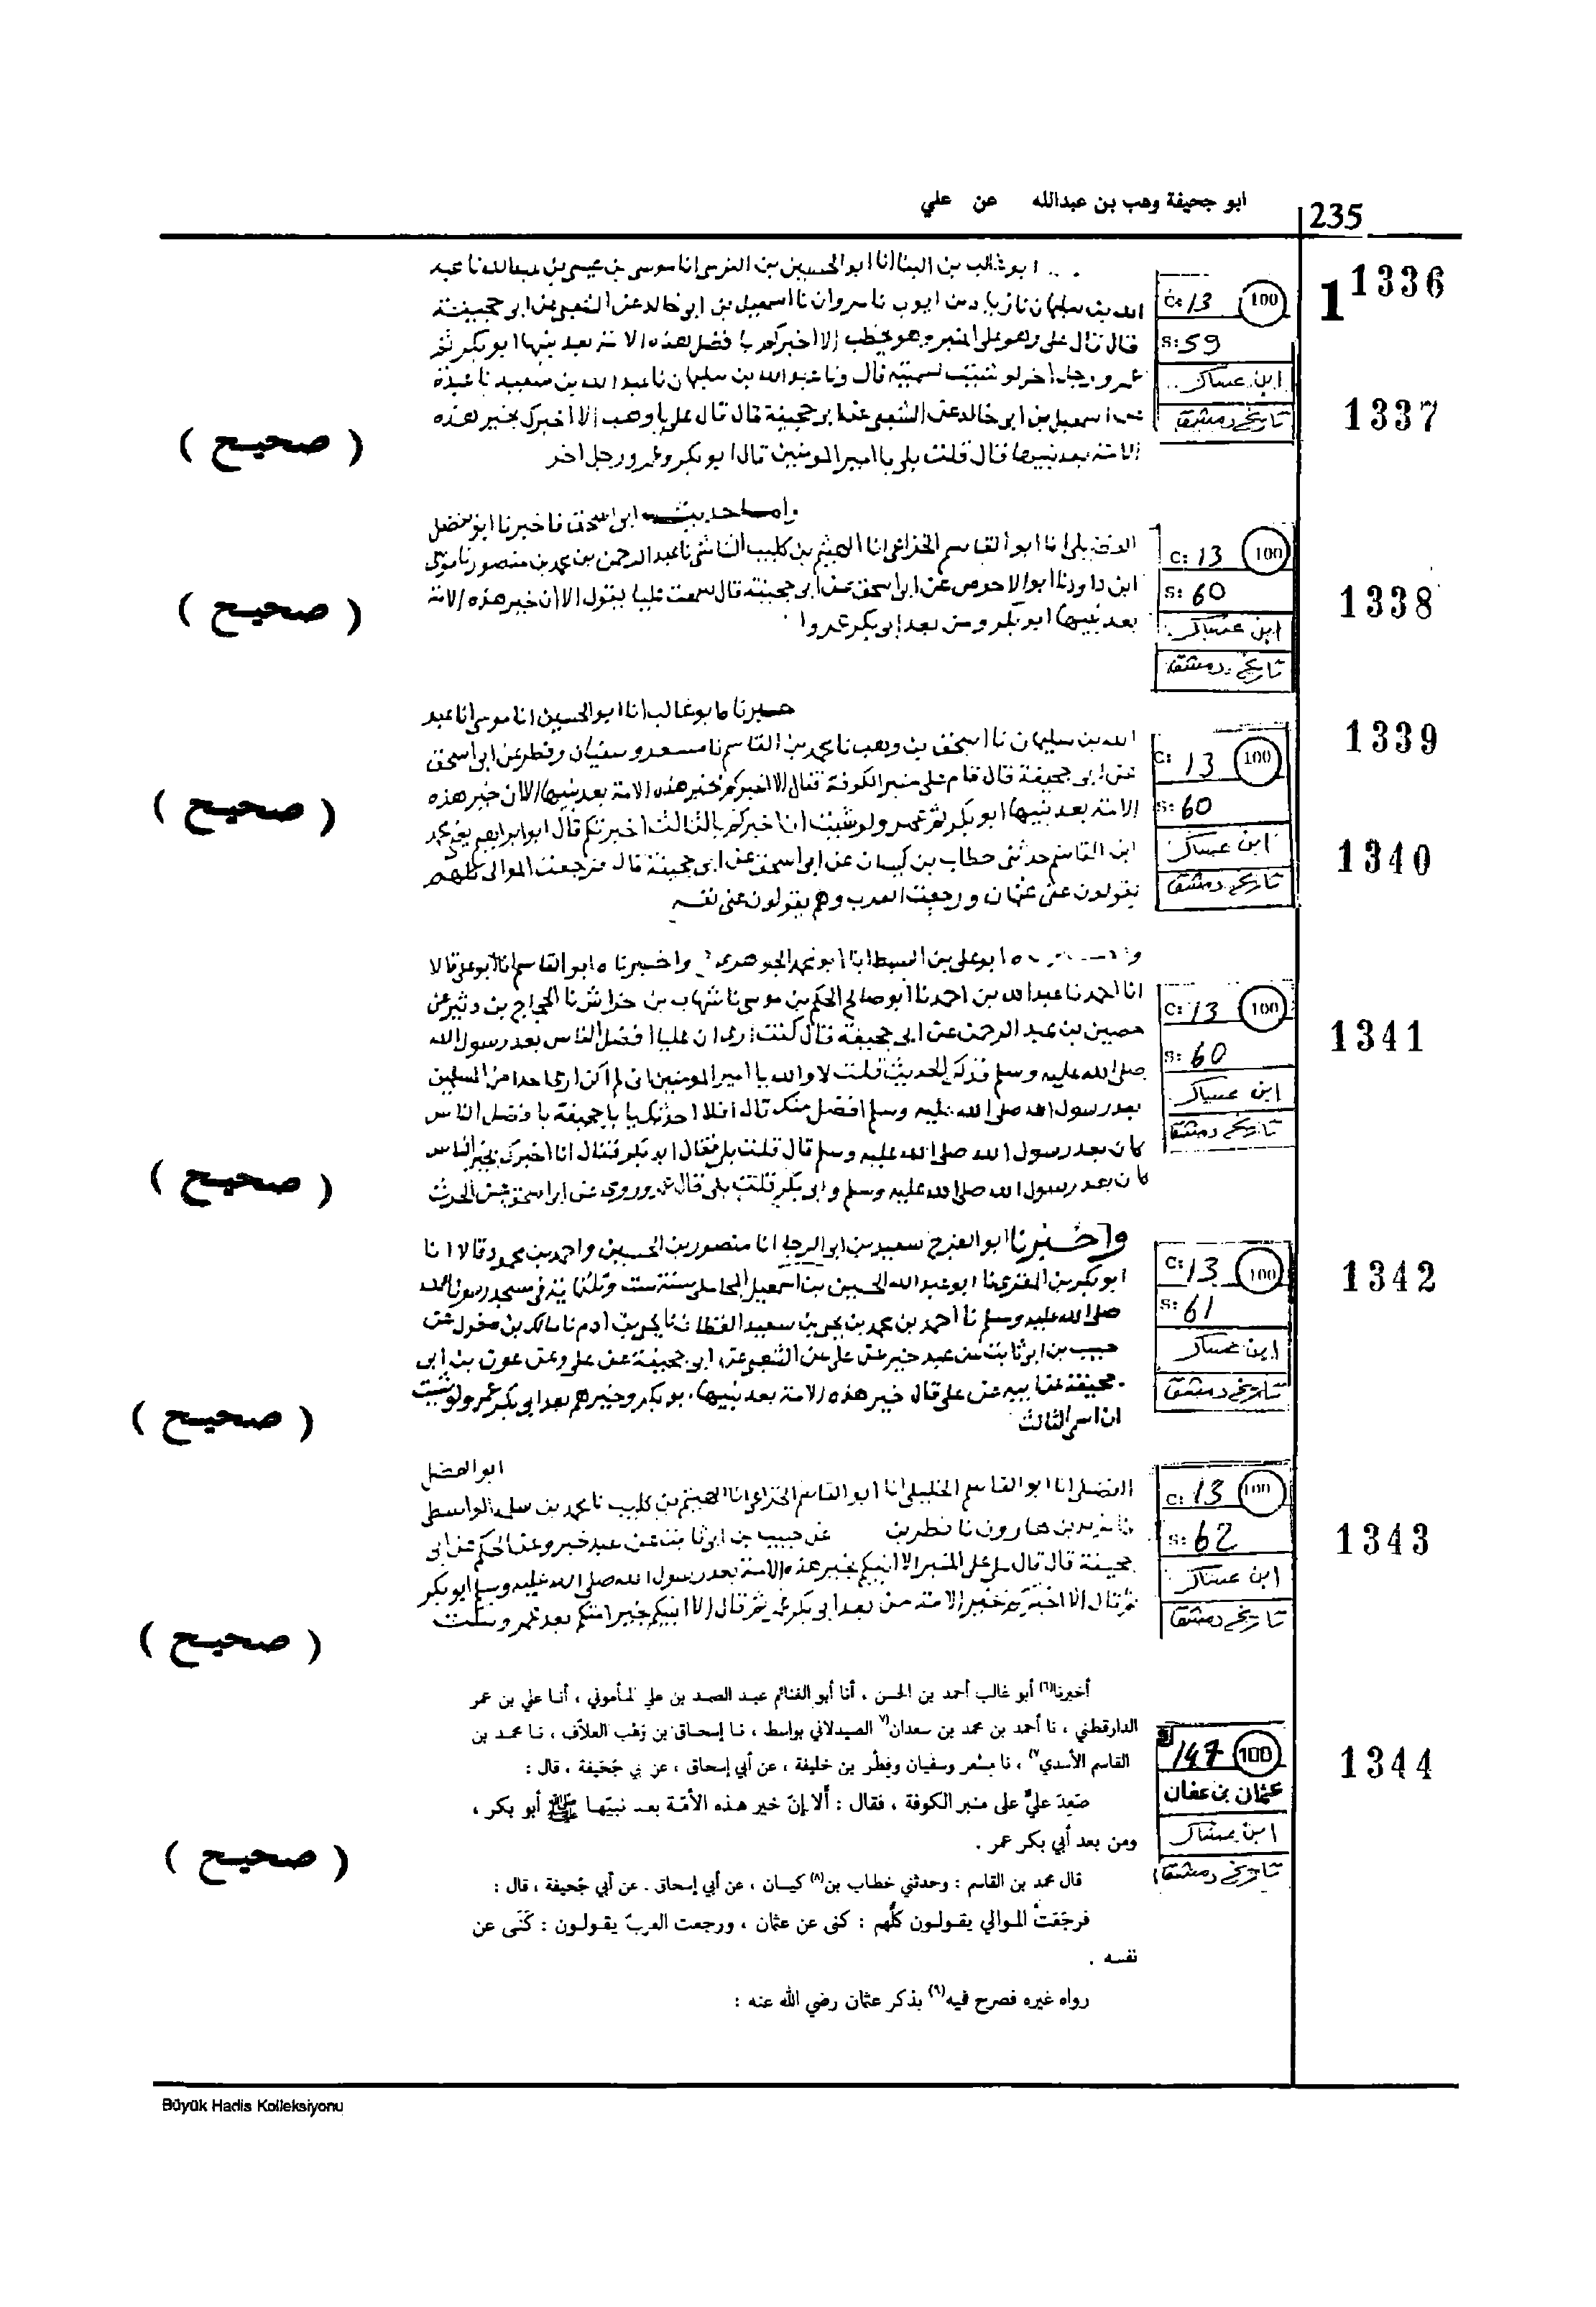 ابو جحيفة وهب بن عبدالله عن علي
235
1
1336
ابو غالب بن البنا انا ابو الحسين بن النرسي انا موسى بن عيسى بن عبدالله نا عبد
الله بن سليمان نا زياد بن ايوب نا مروان نا اسمعيل بن ابى خالد عن الشعبى عن ابى جحيفة
قال قال على وهو على المنبر وهو يخطب الا اخبركم بافضل هذه الامة بعد نبيها ابو بكر ثم
عمر ورجل اخر لو شئت لسميته قال ونا عبد الله بن سليمان نا عبد الله بن سعيد نا عبدة
عن اسمعيل بن ابى خالد عن الشعبى عن ابى جحيفة قال قال على يا وهب الا اخبرك بخير هذه
الامة بعد نبيها قال قلت بلى يا امير المومنين قال ابو بكر وعمر ورجل اخر
C: 13 100
S: 59
ابن عساكر
تاريخ دمشق
1337
( صحيح )
واما حديث ابى اسحق فاخبرنا ابو الفضل
الفضيلى انا ابو القاسم الخزاعى انا الهيثم بن كليب الشاشى نا عبد الرحمن بن محمد بن منصور نا موسى
ابن داود نا ابو الاحوص عن ابى اسحق عن ابى جحيفة قال سمعت عليا يقول الا ان خير هذه الامة
بعد نبيها ابو بكر ومن بعد ابى بكر عمر
C: 13 100
S: 60
ابن عساكر
تاريخ دمشق
1338
( صحيح )
ابو غالب انا ابو الحسين انا موسى انا عبد
الله بن سليمان نا اسحق بن وهب نا محمد بن القاسم نا مسعر وسفيان وفطر عن ابى اسحق
عن ابى جحيفة قال قام على منبر الكوفة فقال الا اخبركم بخير هذه الامة بعد نبيها الا ان خير هذه
الامة بعد نبيها ابو بكر ثم عمر ولو شئت ان اخبركم بالثالث اخبرتكم قال ابو ابراهيم يعنى محمد
ابن القاسم حدثنى خطاب بن كيسان عن ابى اسحق عن ابى جحيفة قال فرجعت الموالى كلهم
يقولون عنى عثمان ورجعت العرب وهم يقولون عنى نفسه
C: 13 100
S: 60
ابن عساكر
تاريخ دمشق
1339
1340
( صحيح )
ابو على بن السبط انا ابو محمد الجوهرى واخبرنا ابو القاسم انا ابو على قالا
انا احمد نا عبد الله بن احمد نا ابو صالح الحكم بن موسى نا شهاب بن خراش نا الحجاج بن دينار عن
حصين بن عبد الرحمن عن ابى جحيفة قال كنت ارى ان عليا افضل الناس بعد رسول الله
صلى الله عليه وسلم فذكر الحديث قلت لا والله يا امير المومنين انى لم اكن ارى احدا من المسلمين
بعد رسول الله صلى الله عليه وسلم افضل منك قال افلا احدثك يا با جحيفة بافضل الناس
كان بعد رسول الله صلى الله عليه وسلم قال قلت بلى فقال ابو بكر فقال انا اخبرك بخير الناس
كان بعد رسول الله صلى الله عليه وسلم وابى بكر قلت بلى قال عمر وروى عن ابى اسحق
C: 13 100
S: 60
ابن عساكر
تاريخ دمشق
1341
( صحيح )
واخبرنا ابو الفرج سعيد بن ابى الرجا انا منصور بن الحسين واحمد بن محمود قالا انا
ابو بكر بن المقرى نا ابو عبد الله الحسين بن اسمعيل المحاملى سنة ست وثلثماية فى مسجد رسول الله
صلى الله عليه وسلم نا احمد بن محمد بن يحيى بن سعيد القطان نا يحيى بن ادم نا مالك بن مغول عن
حبيب بن ابى ثابت عن عبد خير عن على عن الشعبى عن ابى جحيفة عن على وعن عون بن ابى
جحيفة عن ابيه عن على قال خير هذه الامة بعد نبيها ابو بكر وخيرهم بعد ابى بكر عمر ولو شئت
ان اسمى الثالث
C: 13 100
S: 61
ابن عساكر
تاريخ دمشق
1342
( صحيح )
ابو الفضل
الفضلى انا ابو القاسم الخليلى انا ابو القاسم الخزاعى انا الهيثم بن كليب نا محمد بن سلمه الواسطى
نا يزيد بن هارون نا فطر بن عن حبيب بن ابى ثابت عن عبد خير وعن الحكم عن ابى
جحيفة قال قال على على المنبر الا انبيكم بخير هذه الامة بعد رسول الله صلى الله عليه وسلم ابو بكر
ثم قال الا اخبركم بخير الامة من بعد ابى بكر عمر ثم قال الا انبيكم بخير امتكم بعد عمر وسكت
C: 13 100
S: 62
ابن عساكر
تاريخ دمشق
1343
( صحيح )
أخبرنا(٦) أبو غالب أحمد بن الحسن ، أنا أبو الغنائم عبد الصمد بن علي المأموني ، أنا علي بن عمر
الدارقطني ، نا أحمد بن محمد بن سعدان(٧ الصيدلاني بواسط ، نا إسحاق بن وَهْب العلاّف ، نا محمد بن
القاسم الأسدي٧) ، نا مِسْعر وسفيان وفِطْر بن خليفة ، عن أبي إسحاق ، عن أبي جُحَيفة ، قال :
صَعِدَ عليٌّ على منبر الكوفة ، فقال : ألا إنّ خير هذه الأمّة بعد نبيّها ﷺ أبو بكر ،
ومن بعد أبي بكر عمر .
قال محمد بن القاسم : وحدثني خطاب بن(٨) كيسان ، عن أبي إسحاق . عن أبي جُحيفة ، قال :
فرجَعَتْ الموالي يقولون كلُّهم : كنى عن عثمان ، ورجعت العربُ يقولون : كَنَى عن
نفسه .
رواه غيره فصرح فيه(٩) بذكر عثمان رضي الله عنه :
147 100
عثمان بن عفان
ابن عساكر
تاريخ دمشق
1344
( صحيح )
Büyük Hadis Kolleksiyonu